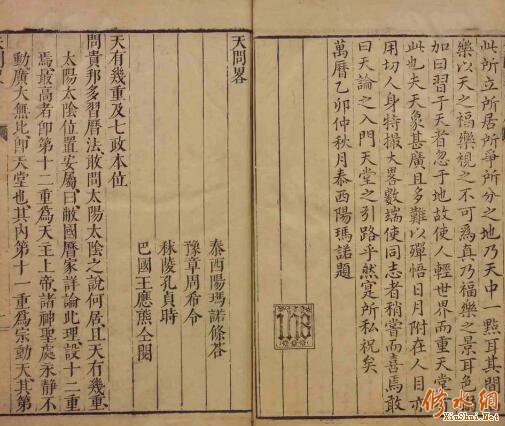 此所立所居所爭所分之地乃天中一點耳其間
樂以天之福樂視之不可為真乃福樂之景耳色
加曰習于天者忽于地故使人輕世界而重天堂
此也夫天象甚廣且多難以殫悟日月附在人目亦
用切人身特撮大畧數端使同志者稍嘗而喜焉敢
曰天論之入門天堂之引路乎然寔所私祝矣
萬曆乙卯仲秋月泰西陽瑪諾題
IHS
天問畧
泰西陽瑪諾條答
豫章周希令
秣陵孔貞時
巴國王應熊仝閱
天有幾重及七政本位
問貴邦多習曆法敢問太陽太陰之說何居且天有幾重
太陽太陰位置安屬曰敝國曆家詳論此理設十二重
焉最高者卽第十二重為天主上帝諸神聖處永靜不
動廣大無比卽天堂也其內第十一重為宗動天其第
修水網
XiuShui.Net